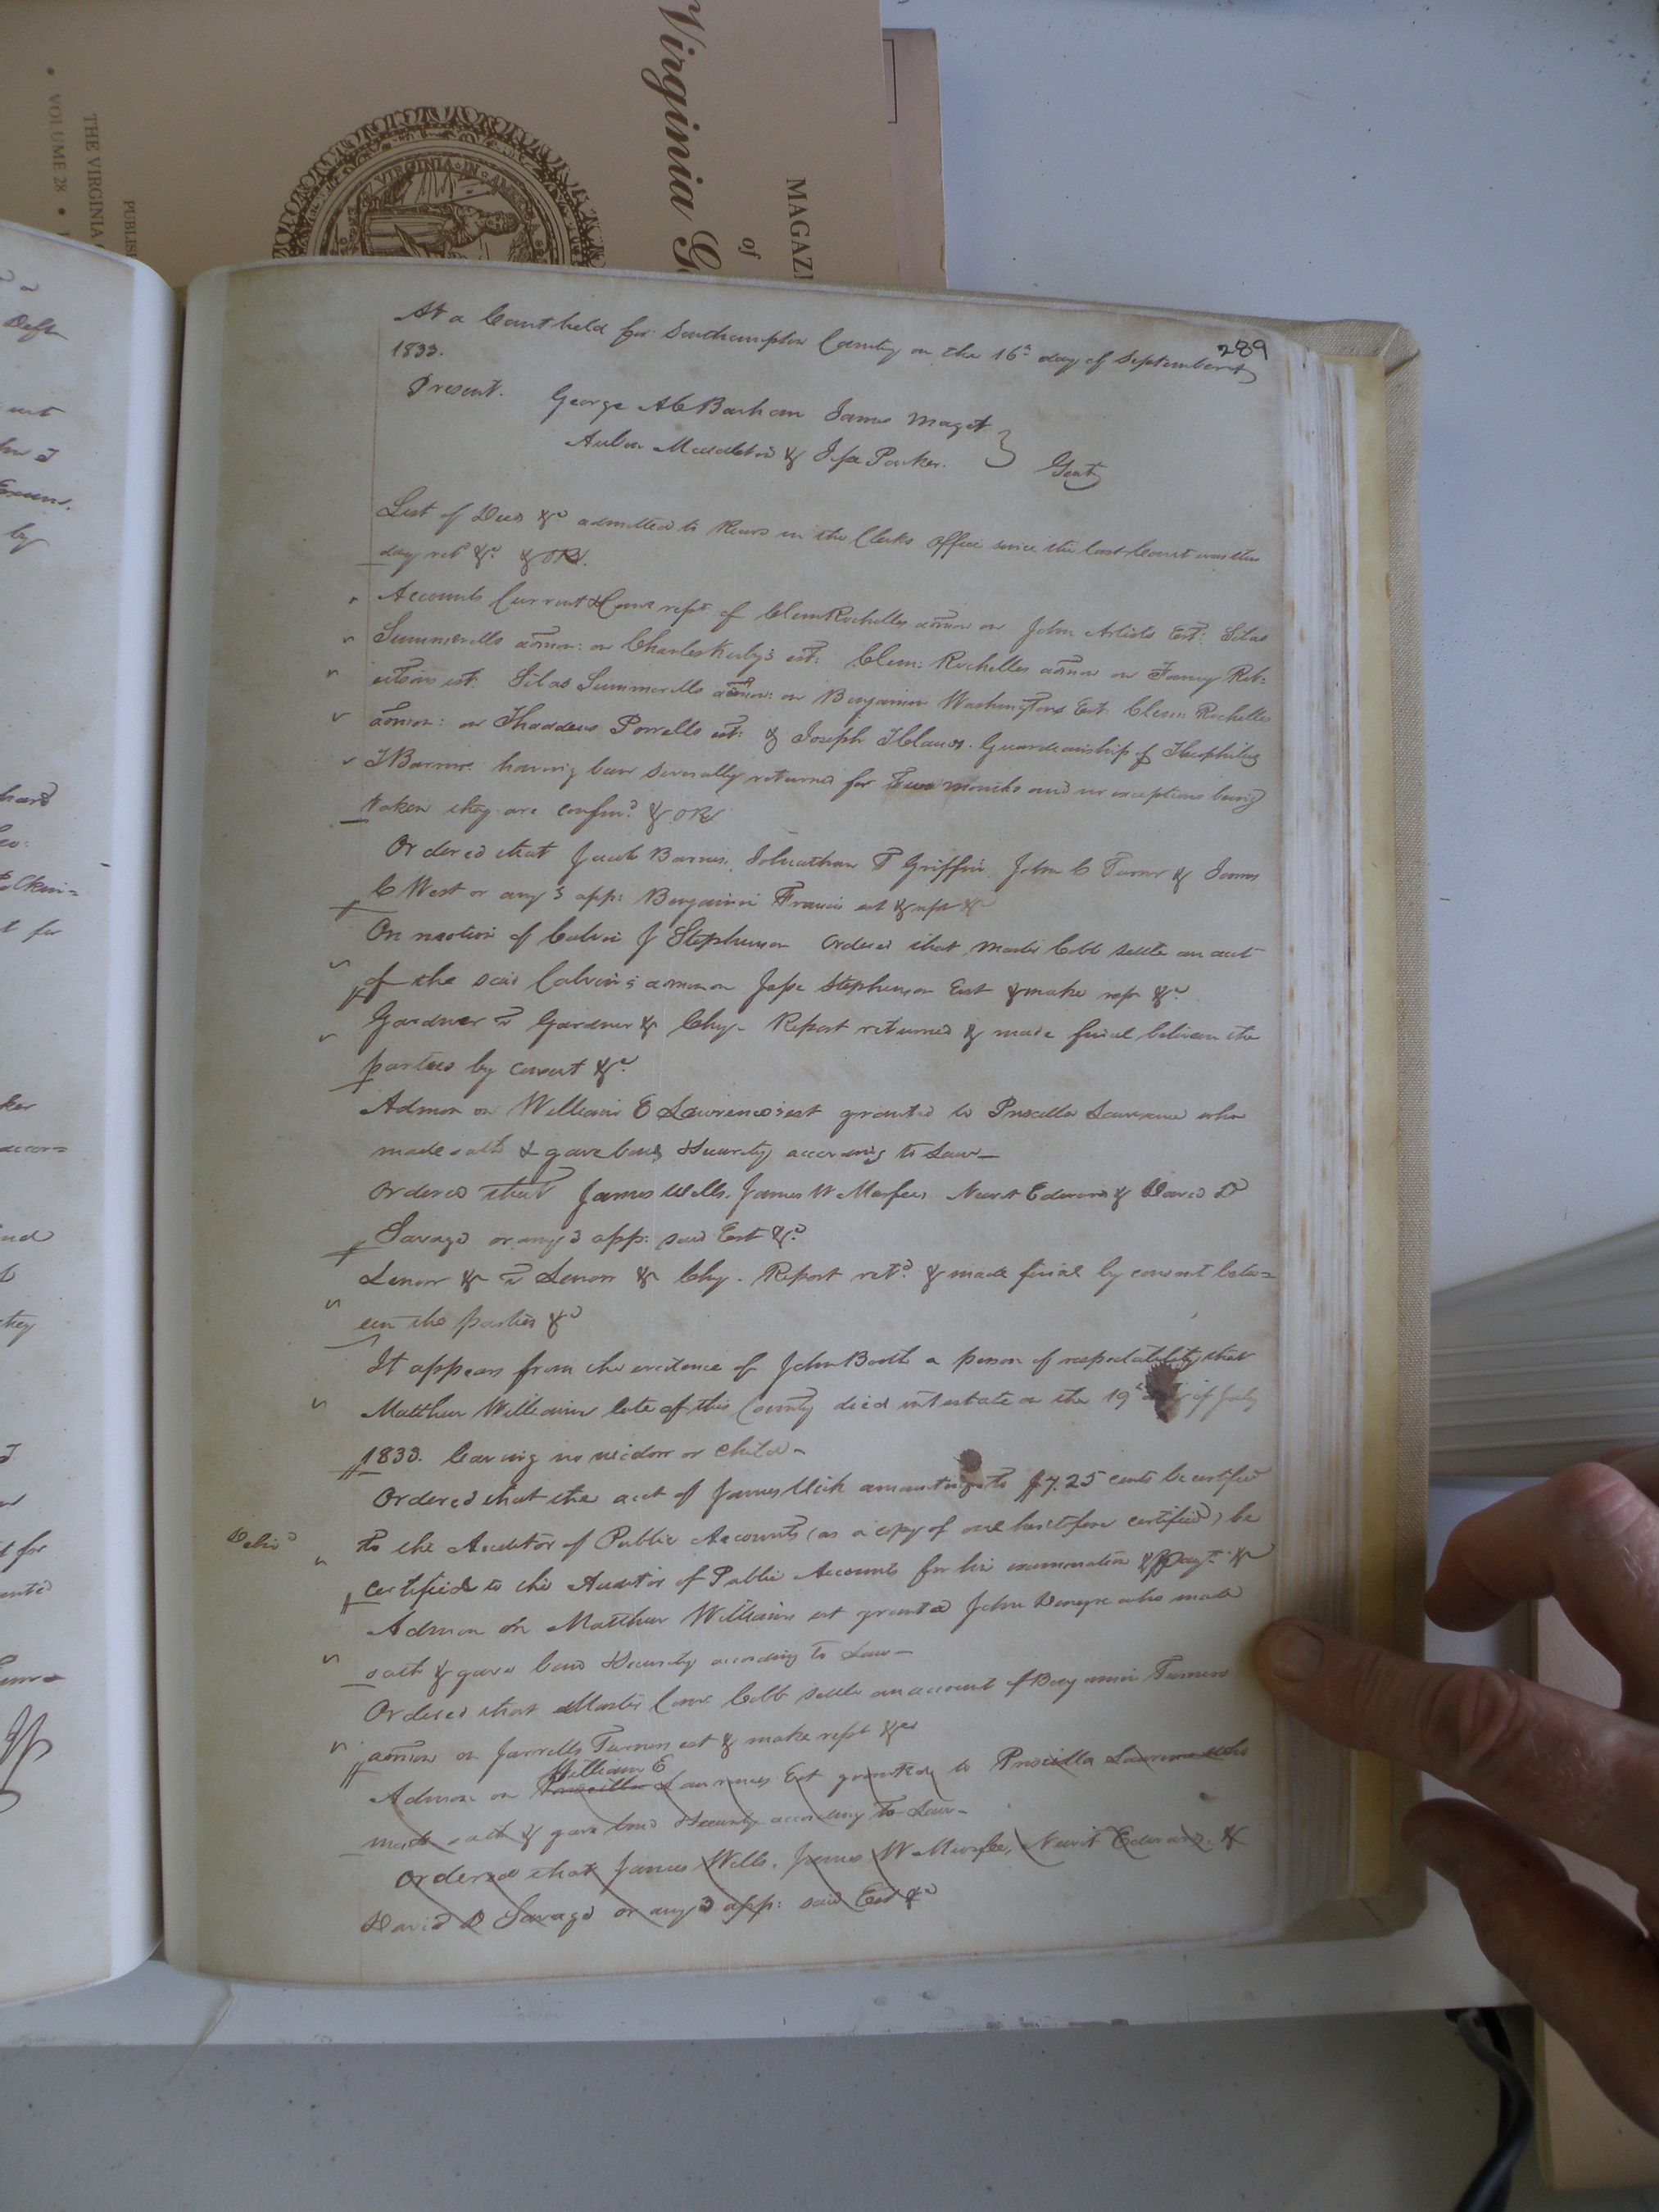 Virginia
MAGAZI
of
THE VIRGINIA
PUBLIS
VOLUME 28
VIRGINIA IN
289
At a Court held for Southampton County on the 16th day of September
1833.
Present. George A C Barham James Maget
Gent
List of Deeds &c admitted to Record in the Clerks Office since the last Court was this
day retd &c & OR.
Accounts Current & Comr rept of Clem Rochelles admon on John Artists Est: Silas
Summerells admon: on Charles Kerby's est: Clem: Rochelles admon on Fanny Rob=
ertsons est: Silas Summerells admon: on Benjamin Washingtons Est. Clem: Rochelles
admon: on Thaddeus Powells est: & Joseph T Claud. Guardianship of Theophilus
T Barrow having been severally returned for two months and no exceptions being
taken they are confirmd & OR
Ordered that Jacob Barnes, Johnathan T Griffin John C Turner & James
C West or any 3 app: Benjamin Francis est & rept &c
On motion of Calvin J Stephenson Ordered that Master Cobb settle an acct
of the said Calvin's admon on Jesse Stephenson Est & make rept &c
Gardner vs Gardner & Chy- Report returned & made final between the
parties by consent &c
Admon on William E Lawrences est granted to Priscilla Lawrence who
made oath & gave bond & Security according to Law-
Ordered that James Wells, James W Murfee, Newit Edwards & David D
Savage or any 3 app: said Est &c
Lenow & vs Lenow & Chy. Report retd & made final by consent betw=
een the parties &c
It appears from the evidence of John Booth a person of respectability that
Matthew Williams late of this County died intestate on the 19th day of July
1833. leaving no widow or child-
Ordered that the acct of James Usik amounting to $7.25 cents be certified
to the Auditor of Public Accounts (as a copy of one heretofore certified) be
certified to the Auditor of Public Accounts for his examination & payt &c
Admon on Matthew Williams est granted John who made
oath & gave bond & Security according to Law-
Ordered that Master Comr Cobb settle an account of Benjamin Turners
admon on Jarrells Turners est & make rept &c
William E
Admon on Priscilla Lawrences Est granted to Priscilla Lawrence who
made oath & gave bond & Security according to Law-
Ordered that James Wells, James W Murfee, Newit Edwards &
David D Savage or any 3 app: said Est &c